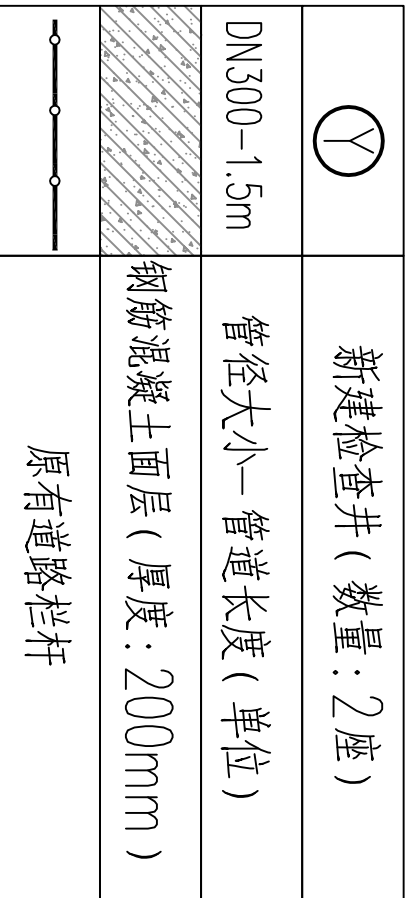 Y 新建检查井(数量:2座)
DN300-1.5m 管径大小-管道长度(单位)
钢筋混凝土面层(厚度:200mm)
原有道路栏杆